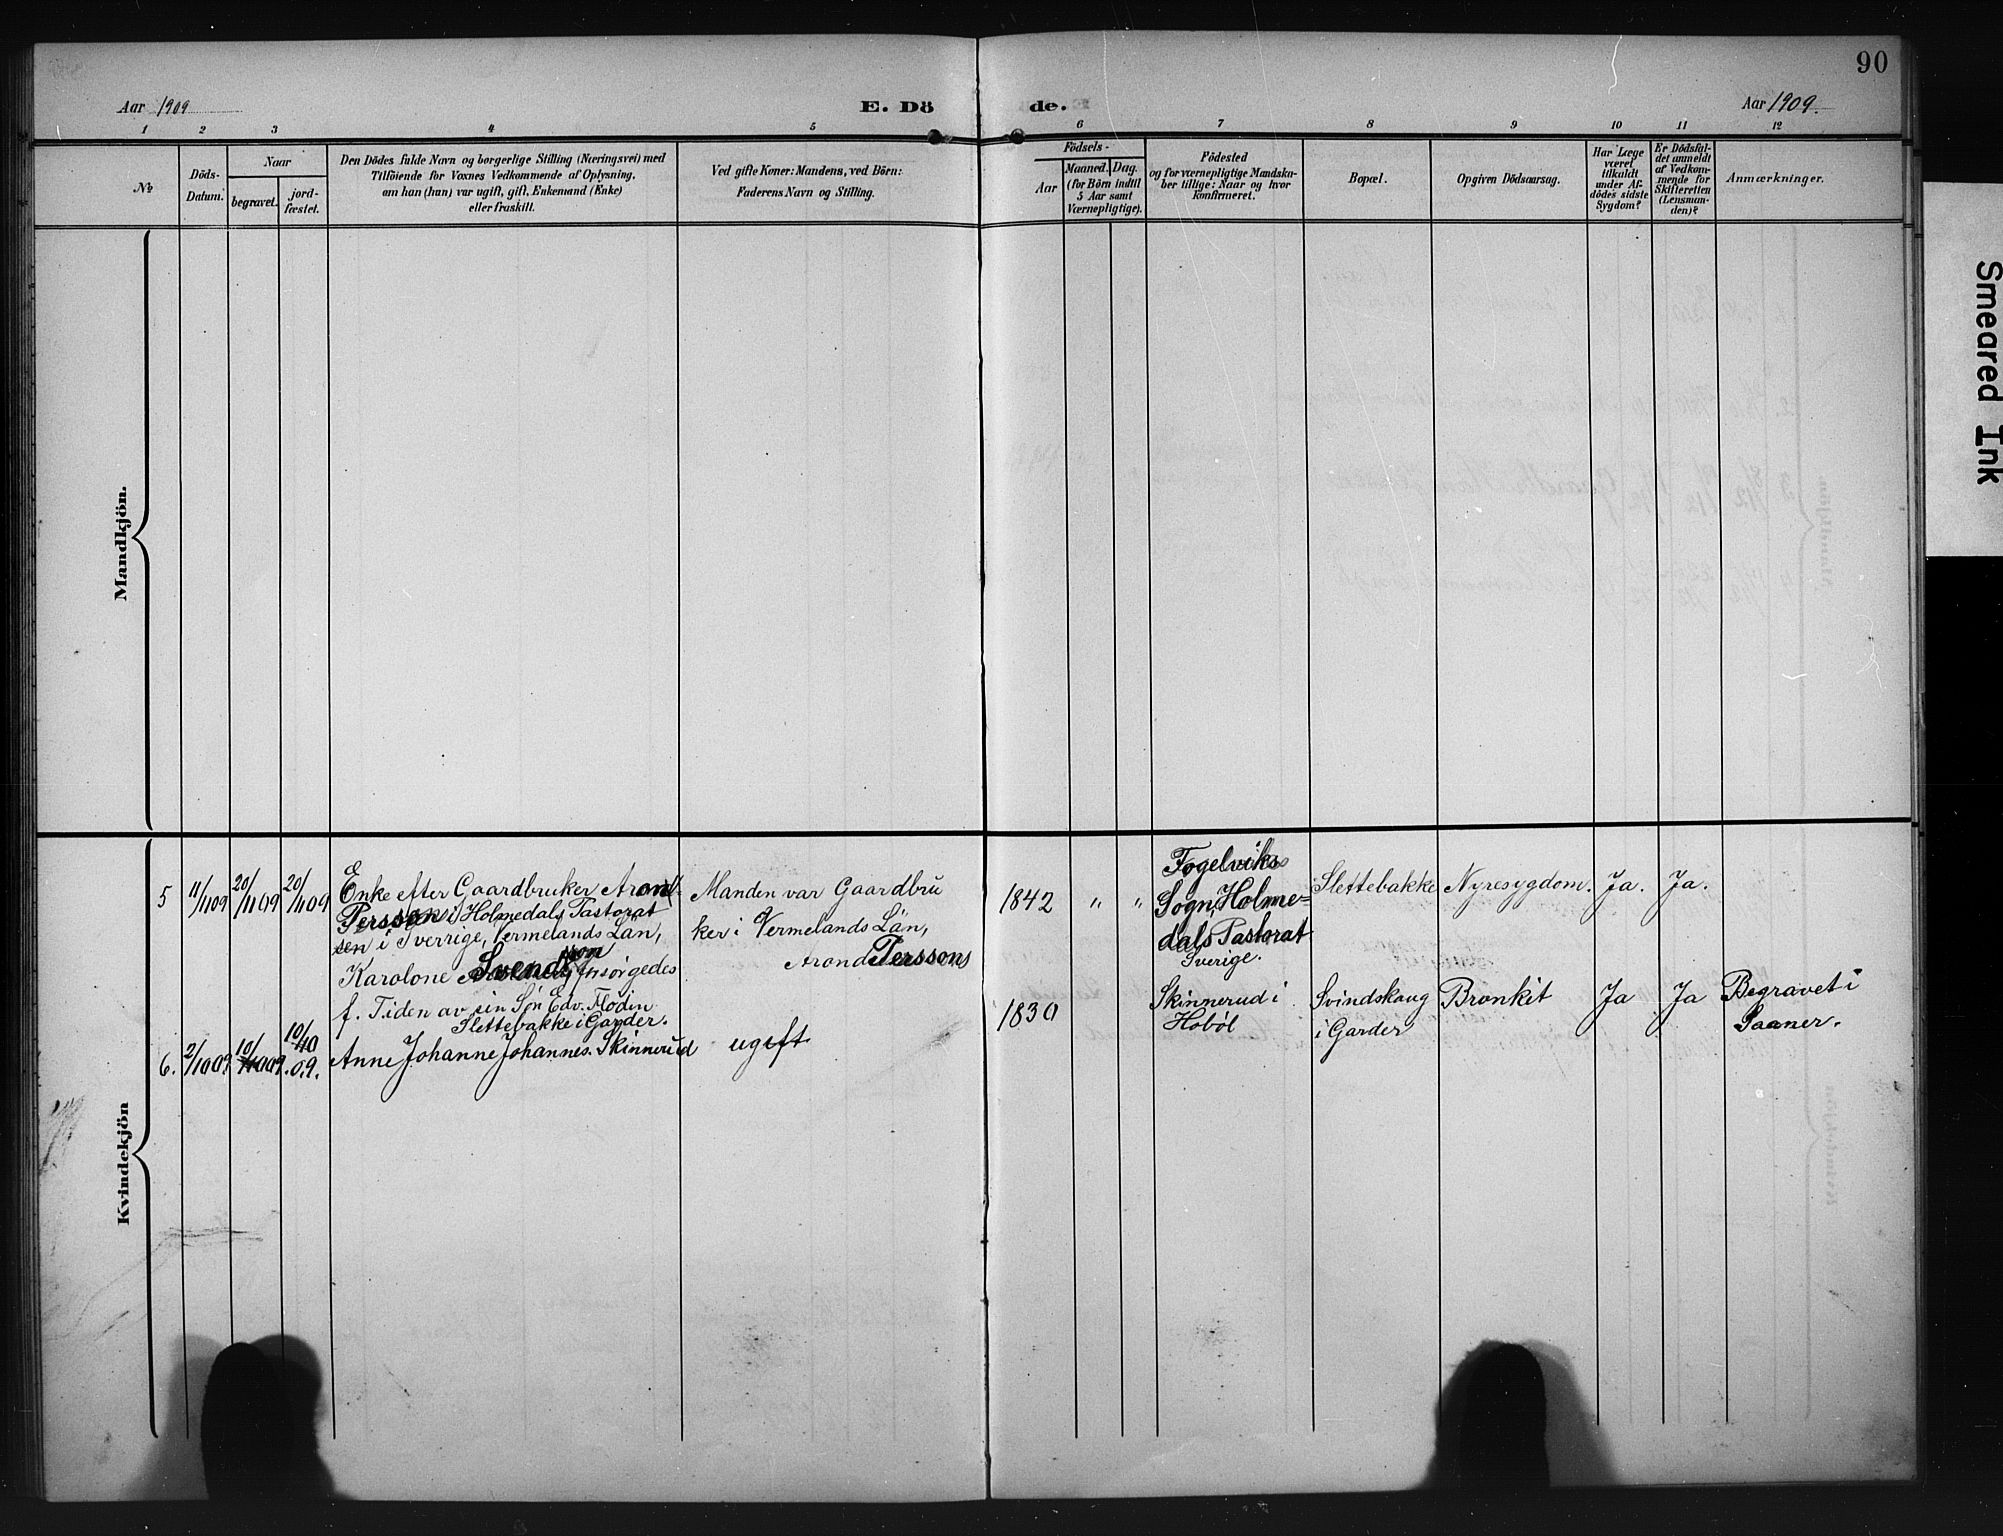 90
Aar 1909
E. Dö de.
Aar 1909.
1 2 3 4 5 6 7 8 9 10 11 12
№
Döds-
Datum.
Naar
begravet.
jord-
fæstet.
Den Dödes fulde Navn og borgerlige Stilling (Næringsvei) med
Tilföiende for Voxnes Vedkommende af Oplysning,
om han (han) var ugift, gift, Enkemand (Enke)
eller fraskilt.
Ved gifte Koner: Mandens, ved Börn:
Faderens Navn og Stilling.
Födsels-
Aar
Maaned. Dag.
(for Börn indtil
5 Aar samt
Værnepligtige).
Födested
og for værnepligtige Mandska-
ber tillige: Naar og hvor
Konfirmeret.
Bopæl.
Opgiven Dödsaarsag.
Har Læge
været
tilkaldt
under Af-
dödes sidste
Sygdom?
Er Dödsfal-
det anmeldt
af Vedkom-
mende for
Skifteretten
(Lensman-
den)?
Anmærkninger.
Mandkjön.
Kvindekjön
5
11/1109
20/1109
20/1109
Enke efter Gaardbruker Arond
Persson i Holmedals Pastorat
sen i Sverrige, Vermelands Län,
Karolone Svendsson forsørgedes
f. Tiden av sin Søn Edv. Flodin
Slettebakke i Garder.
Manden var Gaardbru
ker i Vermelands Län,
Arond Perssons
1842 " "
Fogelviks
Sogn, Holme=
dals Pastorat
Sverige.
Slettebakke
Nyresygdom.
Ja.
Ja.
6.
2/1009.
10/1009.
10/10
09.
Anne Johanne Johannes. Skinnerud
ugift
1830
Skinnerud i
Hobøl
Svindskaug
i Garder
Bronkit
Ja
Ja
Begravet i
Saaner.
Smeared Ink